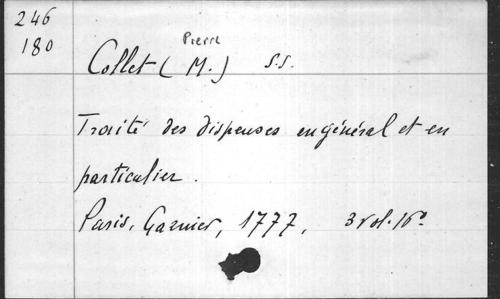 246
180
Pierre
Collet (M.) S.S.
Traité des dispenses en général et en
particulier.
Paris, Garnier, 1777, 3 vol. 16º